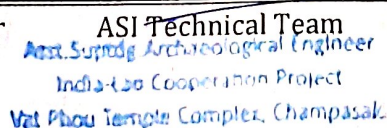 ASI Technical Team
Asst. Suptdg Archaeological Engineer
India-Lao Cooperation Project
Vat Phou Temple Complex, Champasak